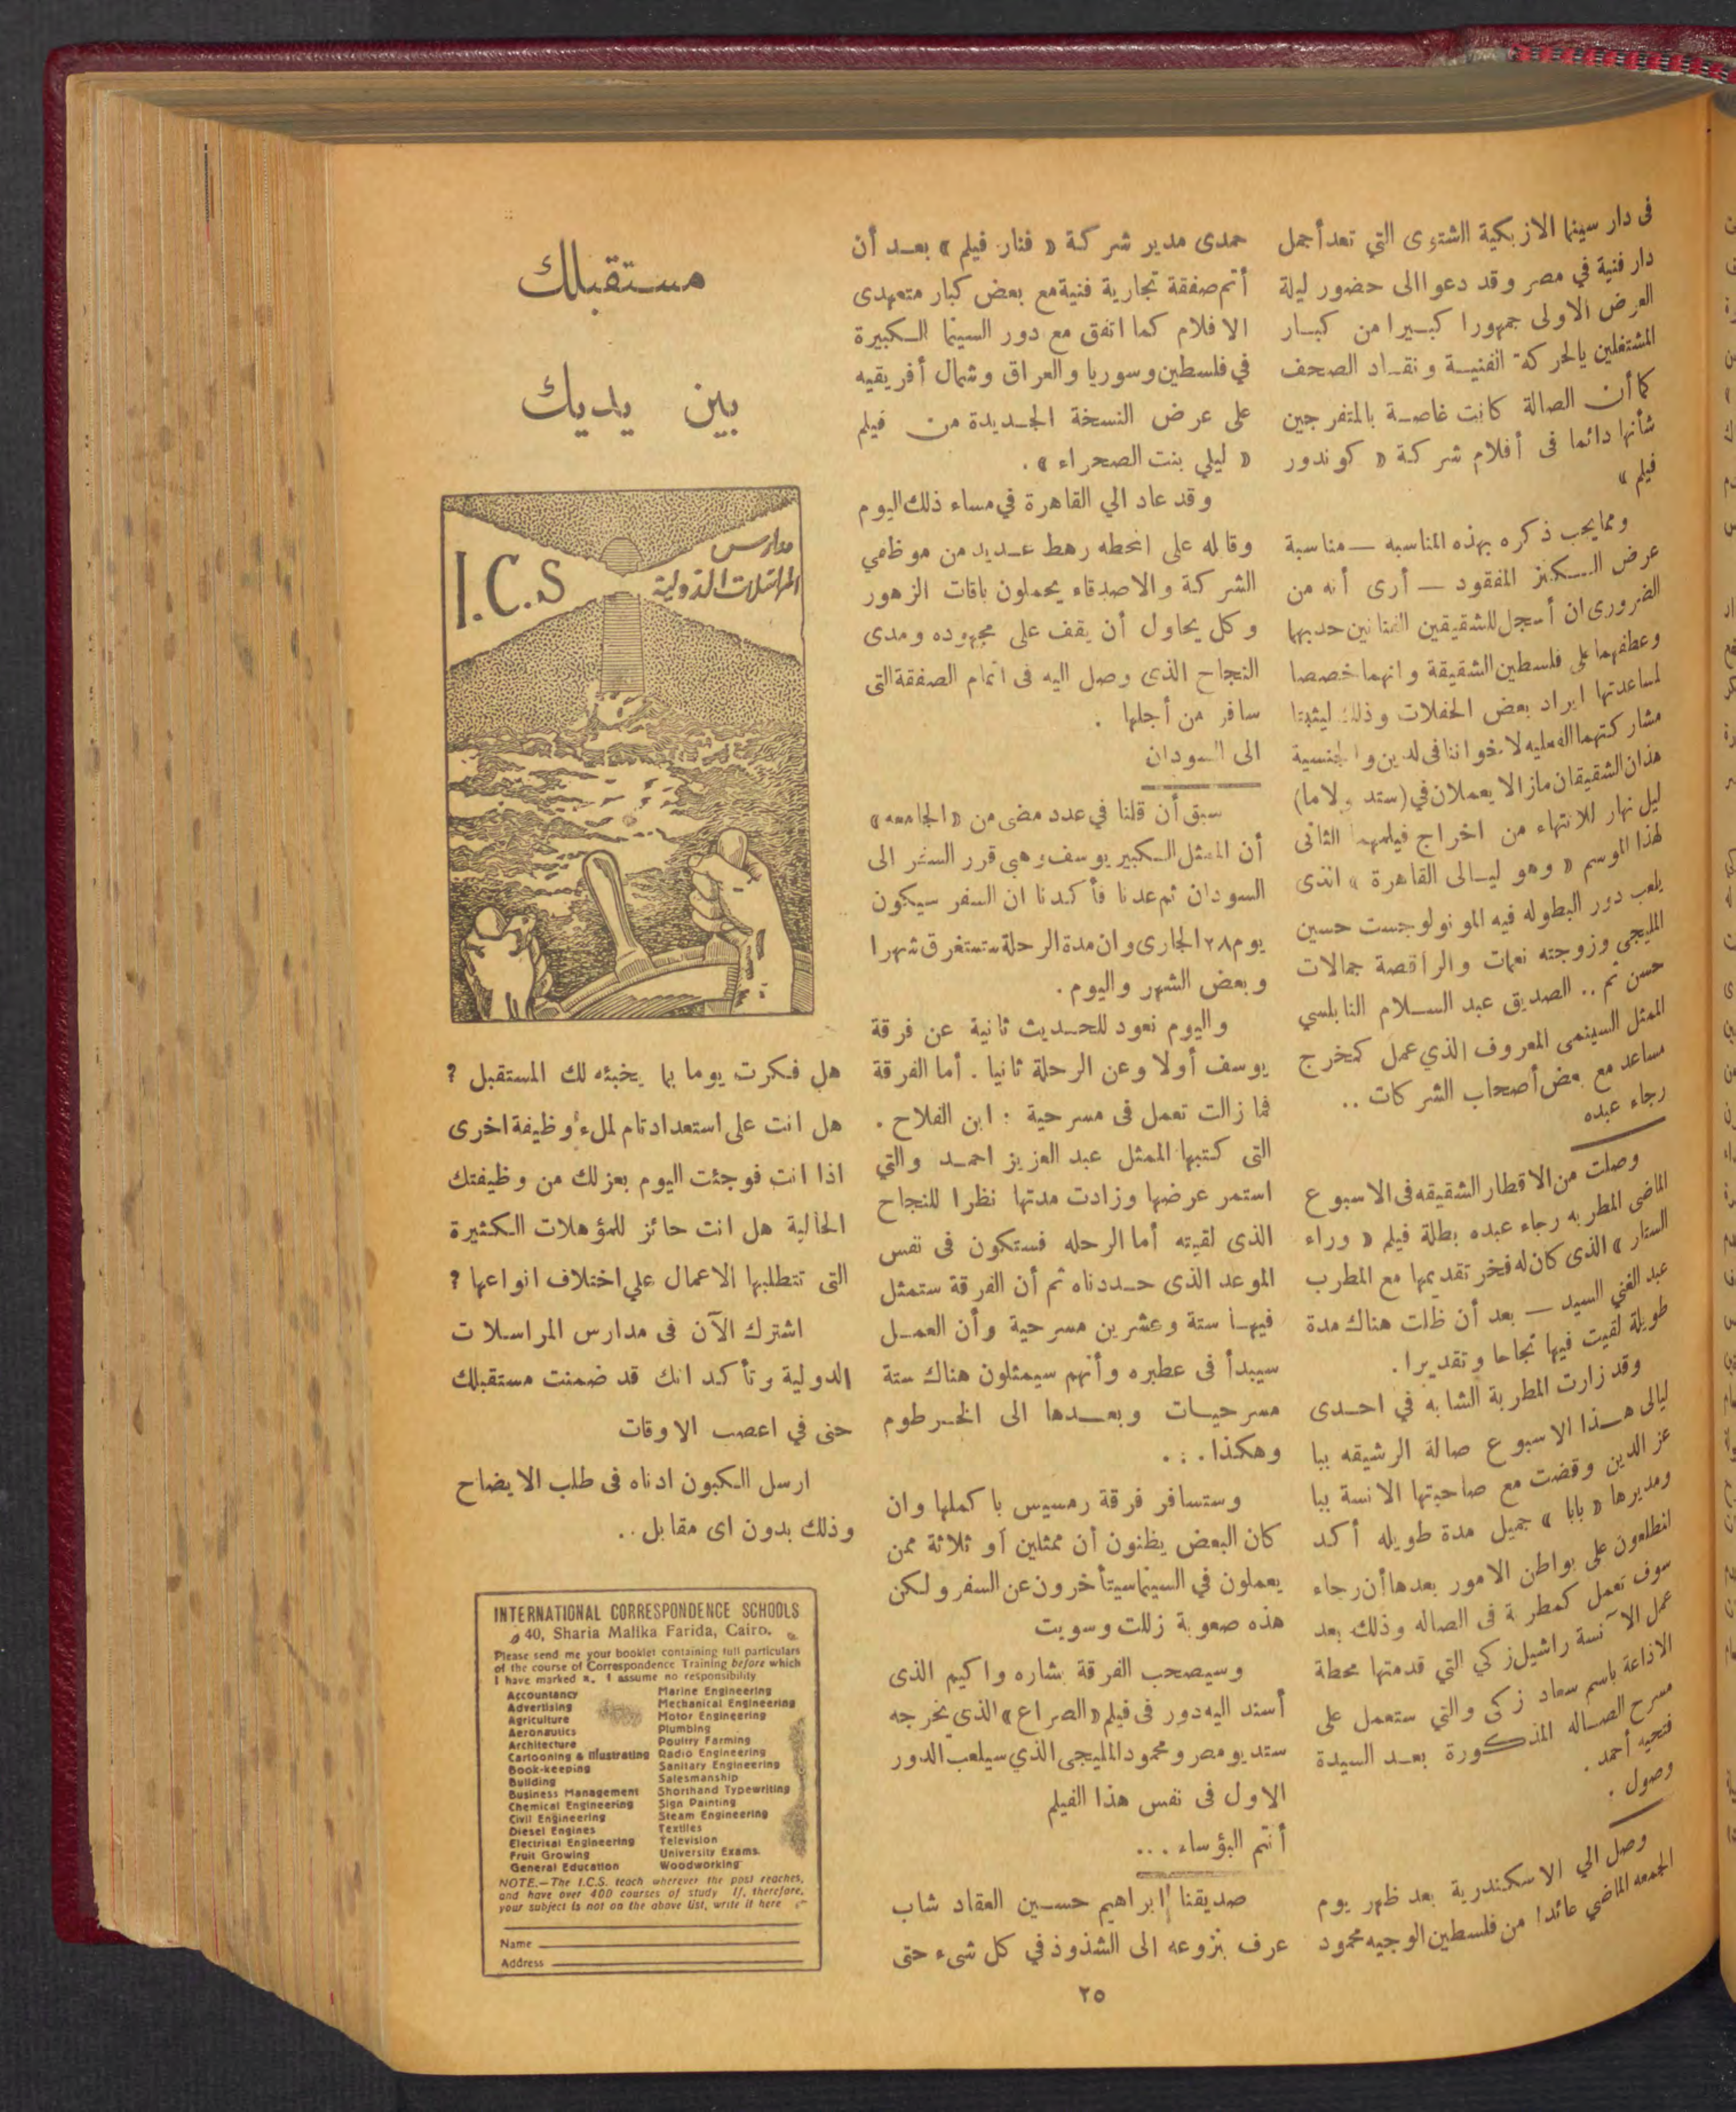 فى دار سينما الازبكية الشتوى التي تعد أجمل
دار فنية في مصر وقد دعوا الى حضور ليلة
العرض الاولى جمهورا كبيرا من كبار
المشتغلين بالحركة الفنية ونقاد الصحف
كما أن الصالة كانت غاصة بالمتفرجين
شأنها دائما فى أفلام شركة « كوندور
فيلم »
ومما يجب ذكره بهذه المناسبه — مناسبة
عرض الكنز المفقود — أرى أنه من
الضرورى ان أسجل للشقيقين الفنانين حدبهما
وعطفهما على فلسطين الشقيقة وانهما خصصا
لمساعدتها ايراد بعض الحفلات وذلك ليثبتا
مشاركتهما العمليه لاخواننا فى الدين والجنسية
هذان الشقيقان مازالا يعملان في (ستديولاما)
ليل نهار للانتهاء من اخراج فيلمهما الثانى
لهذا الموسم « وهو ليالى القاهرة » الذى
يلعب دور البطوله فيه المونولوجست حسين
المليجى وزوجته نعمات والراقصة جمالات
حسن ثم .. الصديق عبد السلام النابلسي
الممثل السينمى المعروف الذي عمل كمخرج
مساعد مع بعض أصحاب الشركات ..
رجاء عبده
وصلت من الاقطار الشقيقه فى الاسبوع
الماضى المطربه رجاء عبده بطلة فيلم « وراء
الستار » الذى كان له فخر تقديمها مع المطرب
عبد الغني السيد — بعد أن ظلت هناك مدة
طويلة لقيت فيها نجاحا وتقديرا .
وقد زارت المطربة الشابه في احدى
ليالى هذا الاسبوع صالة الرشيقه ببا
عز الدين وقضت مع صاحبتها الانسة ببا
ومديرها « بابا » جميل مدة طويله أكد
المطلعون على بواطن الامور بعدها أن رجاء
سوف تعمل كمطربة فى الصاله وذلك بعد
عمل الآنسة راشيل زكي التي قدمتها محطة
الاذاعة باسم سعاد زكى والتي ستعمل على
مسرح الصاله المذكورة بعد السيدة
فتحيه أحمد .
وصول .
وصل الي الاسكندرية بعد ظهر يوم
الجمعه الماضي عائدا من فلسطين الوجيه محمود
حمدى مدير شركة « فنار فيلم » بعد أن
أتم صفقة تجارية فنية مع بعض كبار متعهدى
الافلام كما اتفق مع دور السينما الكبيرة
في فلسطين وسوريا والعراق وشمال أفريقيه
على عرض النسخة الجديدة من فيلم
« ليلي بنت الصحراء » .
وقد عاد الي القاهرة في مساء ذلك اليوم
وقابله على المحطه رهط عديد من موظفي
الشركة والاصدقاء يحملون باقات الزهور
وكل يحاول أن يقف على مجهوده ومدى
النجاح الذى وصل اليه فى اتمام الصفقة التى
سافر من أجلها .
الى السودان
سبق أن قلنا في عدد مضى من « الجامعه »
أن الممثل الكبير يوسف وهبى قرر السفر الى
السودان ثم عدنا فأكدنا ان السفر سيكون
يوم ٢٨ الجارى وان مدة الرحلة ستستغرق شهرا
وبعض الشهر واليوم .
واليوم نعود للحديث ثانية عن فرقة
يوسف أولا وعن الرحلة ثانيا . أما الفرقة
فما زالت تعمل فى مسرحية : ابن الفلاح .
التى كتبها الممثل عبد العزيز احمد والتي
استمر عرضها وزادت مدتها نظرا للنجاح
الذى لقيته أما الرحله فستكون فى نفس
الموعد الذى حددناه ثم أن الفرقة ستمثل
فيها ستة وعشرين مسرحية وأن العمل
سيبدأ فى عطبره وأنهم سيمثلون هناك ستة
مسرحيات وبعدها الى الخرطوم
وهكذا . . .
وستسافر فرقة رمسيس باكملها وان
كان البعض يظنون أن ممثلين أو ثلاثة ممن
يعملون في السينما سيتأخرون عن السفر ولكن
هذه صعوبة زللت وسويت
وسيصحب الفرقة بشاره واكيم الذى
أسند اليه دور فى فيلم « الصراع » الذى يخرجه
ستديو مصر ومحمود المليجى الذي سيلعب الدور
الاول فى نفس هذا الفيلم
أنتم البؤساء ...
صديقنا ابراهيم حسين العقاد شاب
عرف بنزوعه الى الشذوذ في كل شىء حتى
مستقبلك
بين يديك
I.C.S
مدارس
المراسلات الدولية
هل فكرت يوما بما يخبئه لك المستقبل ؟
هل انت على استعداد تام لملء وظيفة اخرى
اذا انت فوجئت اليوم بعزلك من وظيفتك
الحالية هل انت حائز للمؤهلات الكثيرة
التى تتطلبها الاعمال علي اختلاف انواعها ؟
اشترك الآن فى مدارس المراسلات
الدولية وتأكد انك قد ضمنت مستقبلك
حتى في اعصب الاوقات
ارسل الكبون ادناه فى طلب الايضاح
وذلك بدون اى مقابل ..
INTERNATIONAL CORRESPONDENCE SCHOOLS
40, Sharia Malika Farida, Cairo.
Please send me your booklet containing full particulars
of the course of Correspondence Training before which
I have marked x. I assume no responsibility
Accountancy
Advertising
Agriculture
Aeronautics
Architecture
Cartooning & Illustrating
Book-keeping
Building
Business Management
Chemical Engineering
Civil Engineering
Diesel Engines
Electrical Engineering
Fruit Growing
General Education
Marine Engineering
Mechanical Engineering
Motor Engineering
Plumbing
Poultry Farming
Radio Engineering
Sanitary Engineering
Salesmanship
Shorthand Typewriting
Sign Painting
Steam Engineering
Textiles
Television
University Exams.
Woodworking
NOTE.—The I.C.S. teach wherever the post reaches,
and have over 400 courses of study If, therefore,
your subject is not on the above list, write it here
Name
Address
٢٥